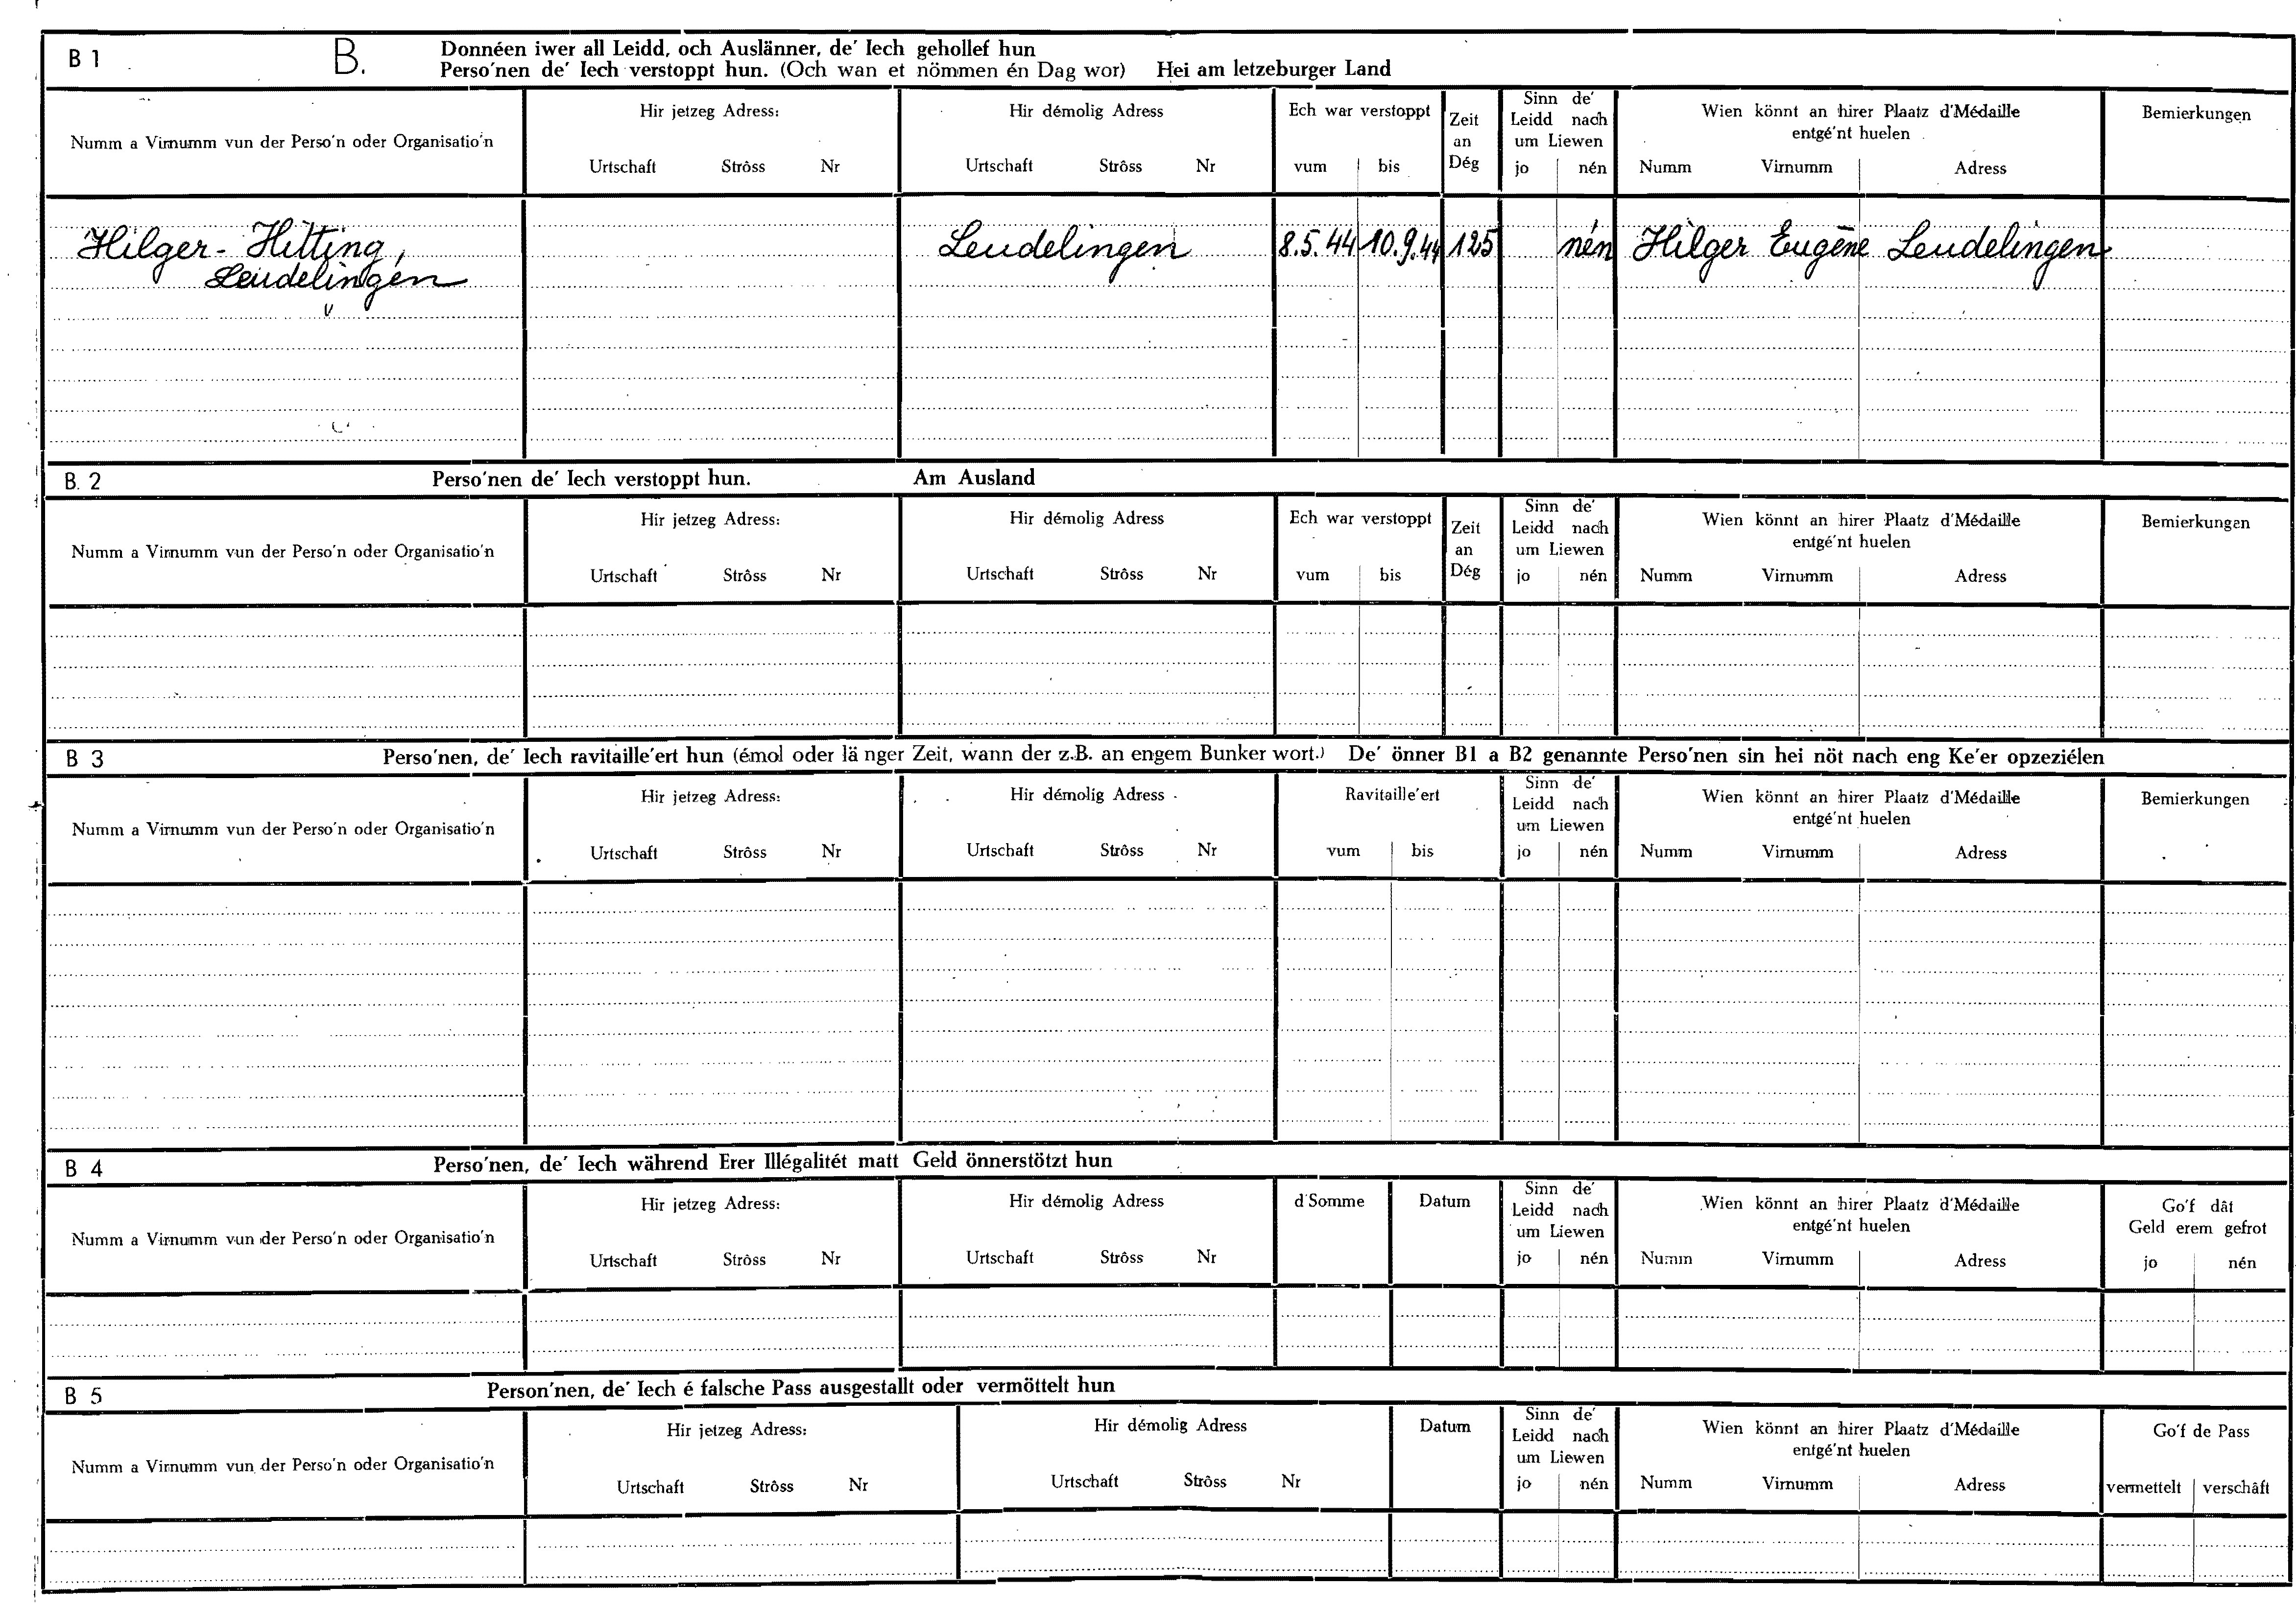 B 1
B.
Donnéen iwer all Leidd, och Auslänner, de' Iech gehollef hun
Perso'nen de' Iech verstoppt hun. (Och wan et nömmen én Dag wor) Hei am letzeburger Land
Numm a Virnumm vun der Perso'n oder Organisatio'n
Hir jetzeg Adress:
Urtschaft Strôss Nr
Hir démolig Adress
Urtschaft Strôss Nr
Ech war verstoppt
vum bis
Zeit
an
Dég
Sinn de'
Leidd nach
um Liewen
jo nén
Wien könnt an hirer Plaatz d'Médaille
entgé'nt huelen
Numm Virnumm Adress
Bemierkungen
Hilger - Hitting, Leudelingen 8.5.44 10.9.44 125 nén Hilger Eugène Leudelingen
Leudelingen
B. 2
Perso'nen de' Iech verstoppt hun. Am Ausland
Numm a Virnumm vun der Perso'n oder Organisatio'n
Hir jetzeg Adress:
Urtschaft Strôss Nr
Hir démolig Adress
Urtschaft Strôss Nr
Ech war verstoppt
vum bis
Zeit
an
Dég
Sinn de'
Leidd nach
um Liewen
jo nén
Wien könnt an hirer Plaatz d'Médaille
entgé'nt huelen
Numm Virnumm Adress
Bemierkungen
B 3
Perso'nen, de' Iech ravitaille'ert hun (émol oder lä nger Zeit, wann der z.B. an engem Bunker wort.) De' önner B1 a B2 genannte Perso'nen sin hei nöt nach eng Ke'er opzeziélen
Numm a Virnumm vun der Perso'n oder Organisatio'n
Hir jetzeg Adress:
Urtschaft Strôss Nr
Hir démolig Adress
Urtschaft Strôss Nr
Ravitaille'ert
vum bis
Sinn de'
Leidd nach
um Liewen
jo nén
Wien könnt an hirer Plaatz d'Médaille
entgé'nt huelen
Numm Virnumm Adress
Bemierkungen
B 4
Perso'nen, de' Iech während Erer Illégalitét matt Geld önnerstötzt hun
Numm a Virnumm vun der Perso'n oder Organisatio'n
Hir jetzeg Adress:
Urtschaft Strôss Nr
Hir démolig Adress
Urtschaft Strôss Nr
d'Somme
Datum
Sinn de'
Leidd nach
um Liewen
jo nén
Wien könnt an hirer Plaatz d'Médaille
entgé'nt huelen
Numm Virnumm Adress
Go'f dât
Geld erem gefrot
jo nén
B 5
Person'nen, de' Iech é falsche Pass ausgestallt oder vermöttelt hun
Numm a Virnumm vun der Perso'n oder Organisatio'n
Hir jetzeg Adress:
Urtschaft Strôss Nr
Hir démolig Adress
Urtschaft Strôss Nr
Datum
Sinn de'
Leidd nach
um Liewen
jo nén
Wien könnt an hirer Plaatz d'Médaille
entgé'nt huelen
Numm Virnumm Adress
Go'f de Pass
vermettelt verschâft